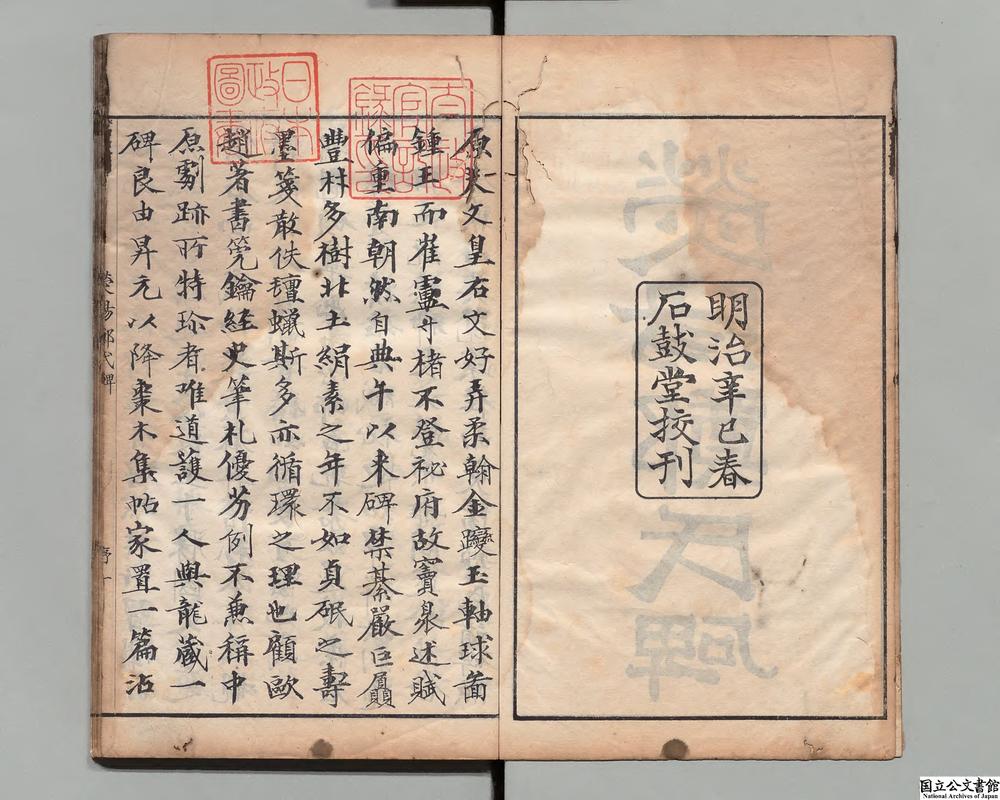 明治辛巳春
石鼓堂挍刊
原夫文皇右文好弄柔翰金躞玉軸球啚
鍾王而崔盧寸楮不登祕府故竇臮述賦
偏重南朝然自典午以来碑禁綦嚴巨贔
豐林多樹北土絹素之年不如貞珉之壽
墨箋散佚氊蠟斯多亦循環之理也顧歐
趙著書筦鑰經史筆札優劣例不兼稱中
原劉跡所特珍者唯道護一人與龍藏一
碑良由昇元以降棗木集帖家置一篇沾
序一
日本政府圖書
国立公文書館
National Archives of Japan